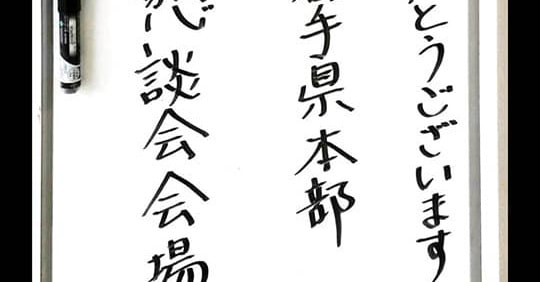 とうございます
岩手県本部
懇談会会場